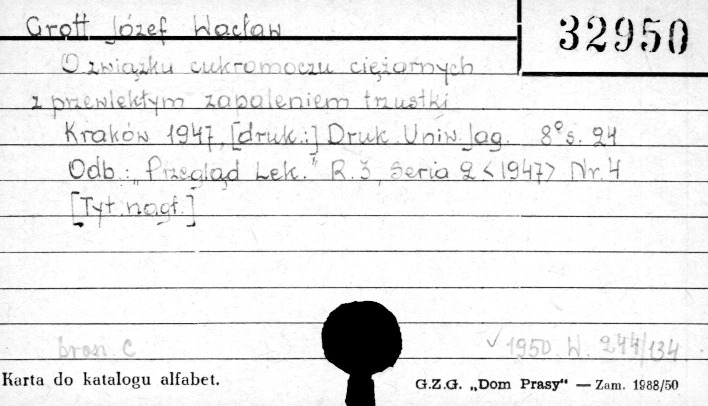 Grott Józef Wacław
32950
O związku cukromoczu ciężarnych
z przewlekłym zapaleniem trzustki
Kraków 1947, [druk.:] Druk. Uniw. Jag. 8° s. 24
Odb.: „Przegląd Lek." R. 3, Seria 2 <1947> Nr. 4
[Tyt. nagł.]
brosz. C
✓ 1950. W. 244/134
Karta do katalogu alfabet.
G.Z.G. „Dom Prasy" — Zam. 1988/50